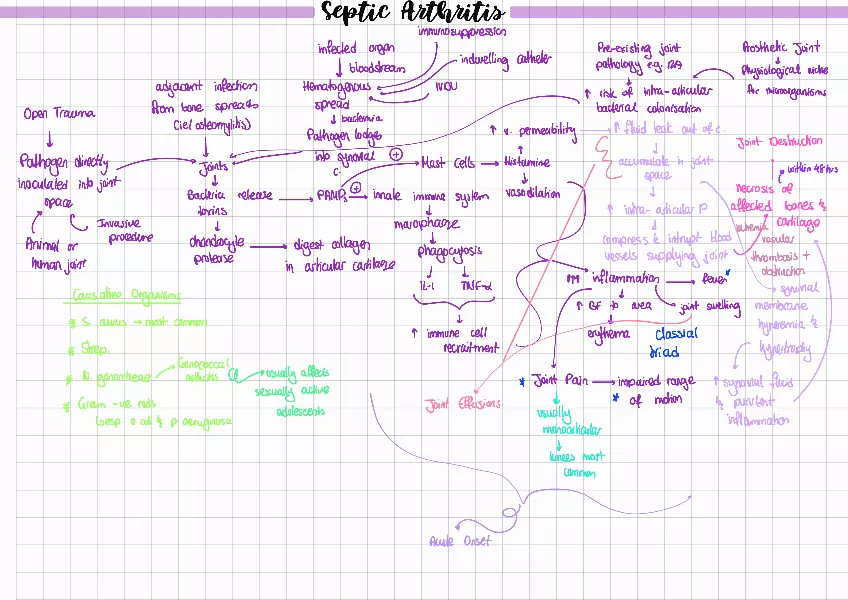 Septic Arthritis
immunosuppression
infected organ
bloodstream
indwelling catheter
IVDU
Hematogenous
spread
↓ bacteremia
Pathogen lodge
into synovial
c.
adjacent infection
from bone spreads
(ie osteomyelitis)
Open Trauma
Pathogen directly
inoculated into joint
space
Invasive
procedure
Animal or
human joint
Joints
Bacteria release
toxins
chondrocyte
protease
digest collagen
in articular cartilage
PAMPs
+
+
innate immune system
macrophage
phagocytosis
IL-1
TNF-α
↑ immune cell
recruitment
Mast Cells
Histamine
↑ v. permeability
vasodilation
Pre-existing joint
pathology e.g. RA
↑ risk of intra-articular
bacterial colonisation
Prosthetic Joint
Physiological niche
for microorganisms
↑ fluid leak out of c.
accumulate in joint
space
↑ intra-articular P
compress & intrupt blood
vessels supplying joint
Joint Destruction
within 48hrs
necrosis of
affected bones &
cartilage
ischemia
vascular
thrombosis +
obstruction
synovial
membrane
hyperemia &
hypertrophy
↑ synovial fluid
& purulent
inflammation
↑↑↑ inflammation
fever*
↑ BF to area
joint swelling
erythema
Classial
triad
* Joint Pain
impaired range
* of motion
usually
monoarticular
knees most
common
Joint Effusions
Acute Onset
Causative Organisms
* S. aureus → most common
* Strep.
* N. gonorrheae
Gonococcal
arthritis
usually affects
sexually active
adolescents
* Gram -ve rods
↳ esp e.coli & p. aeruginosa